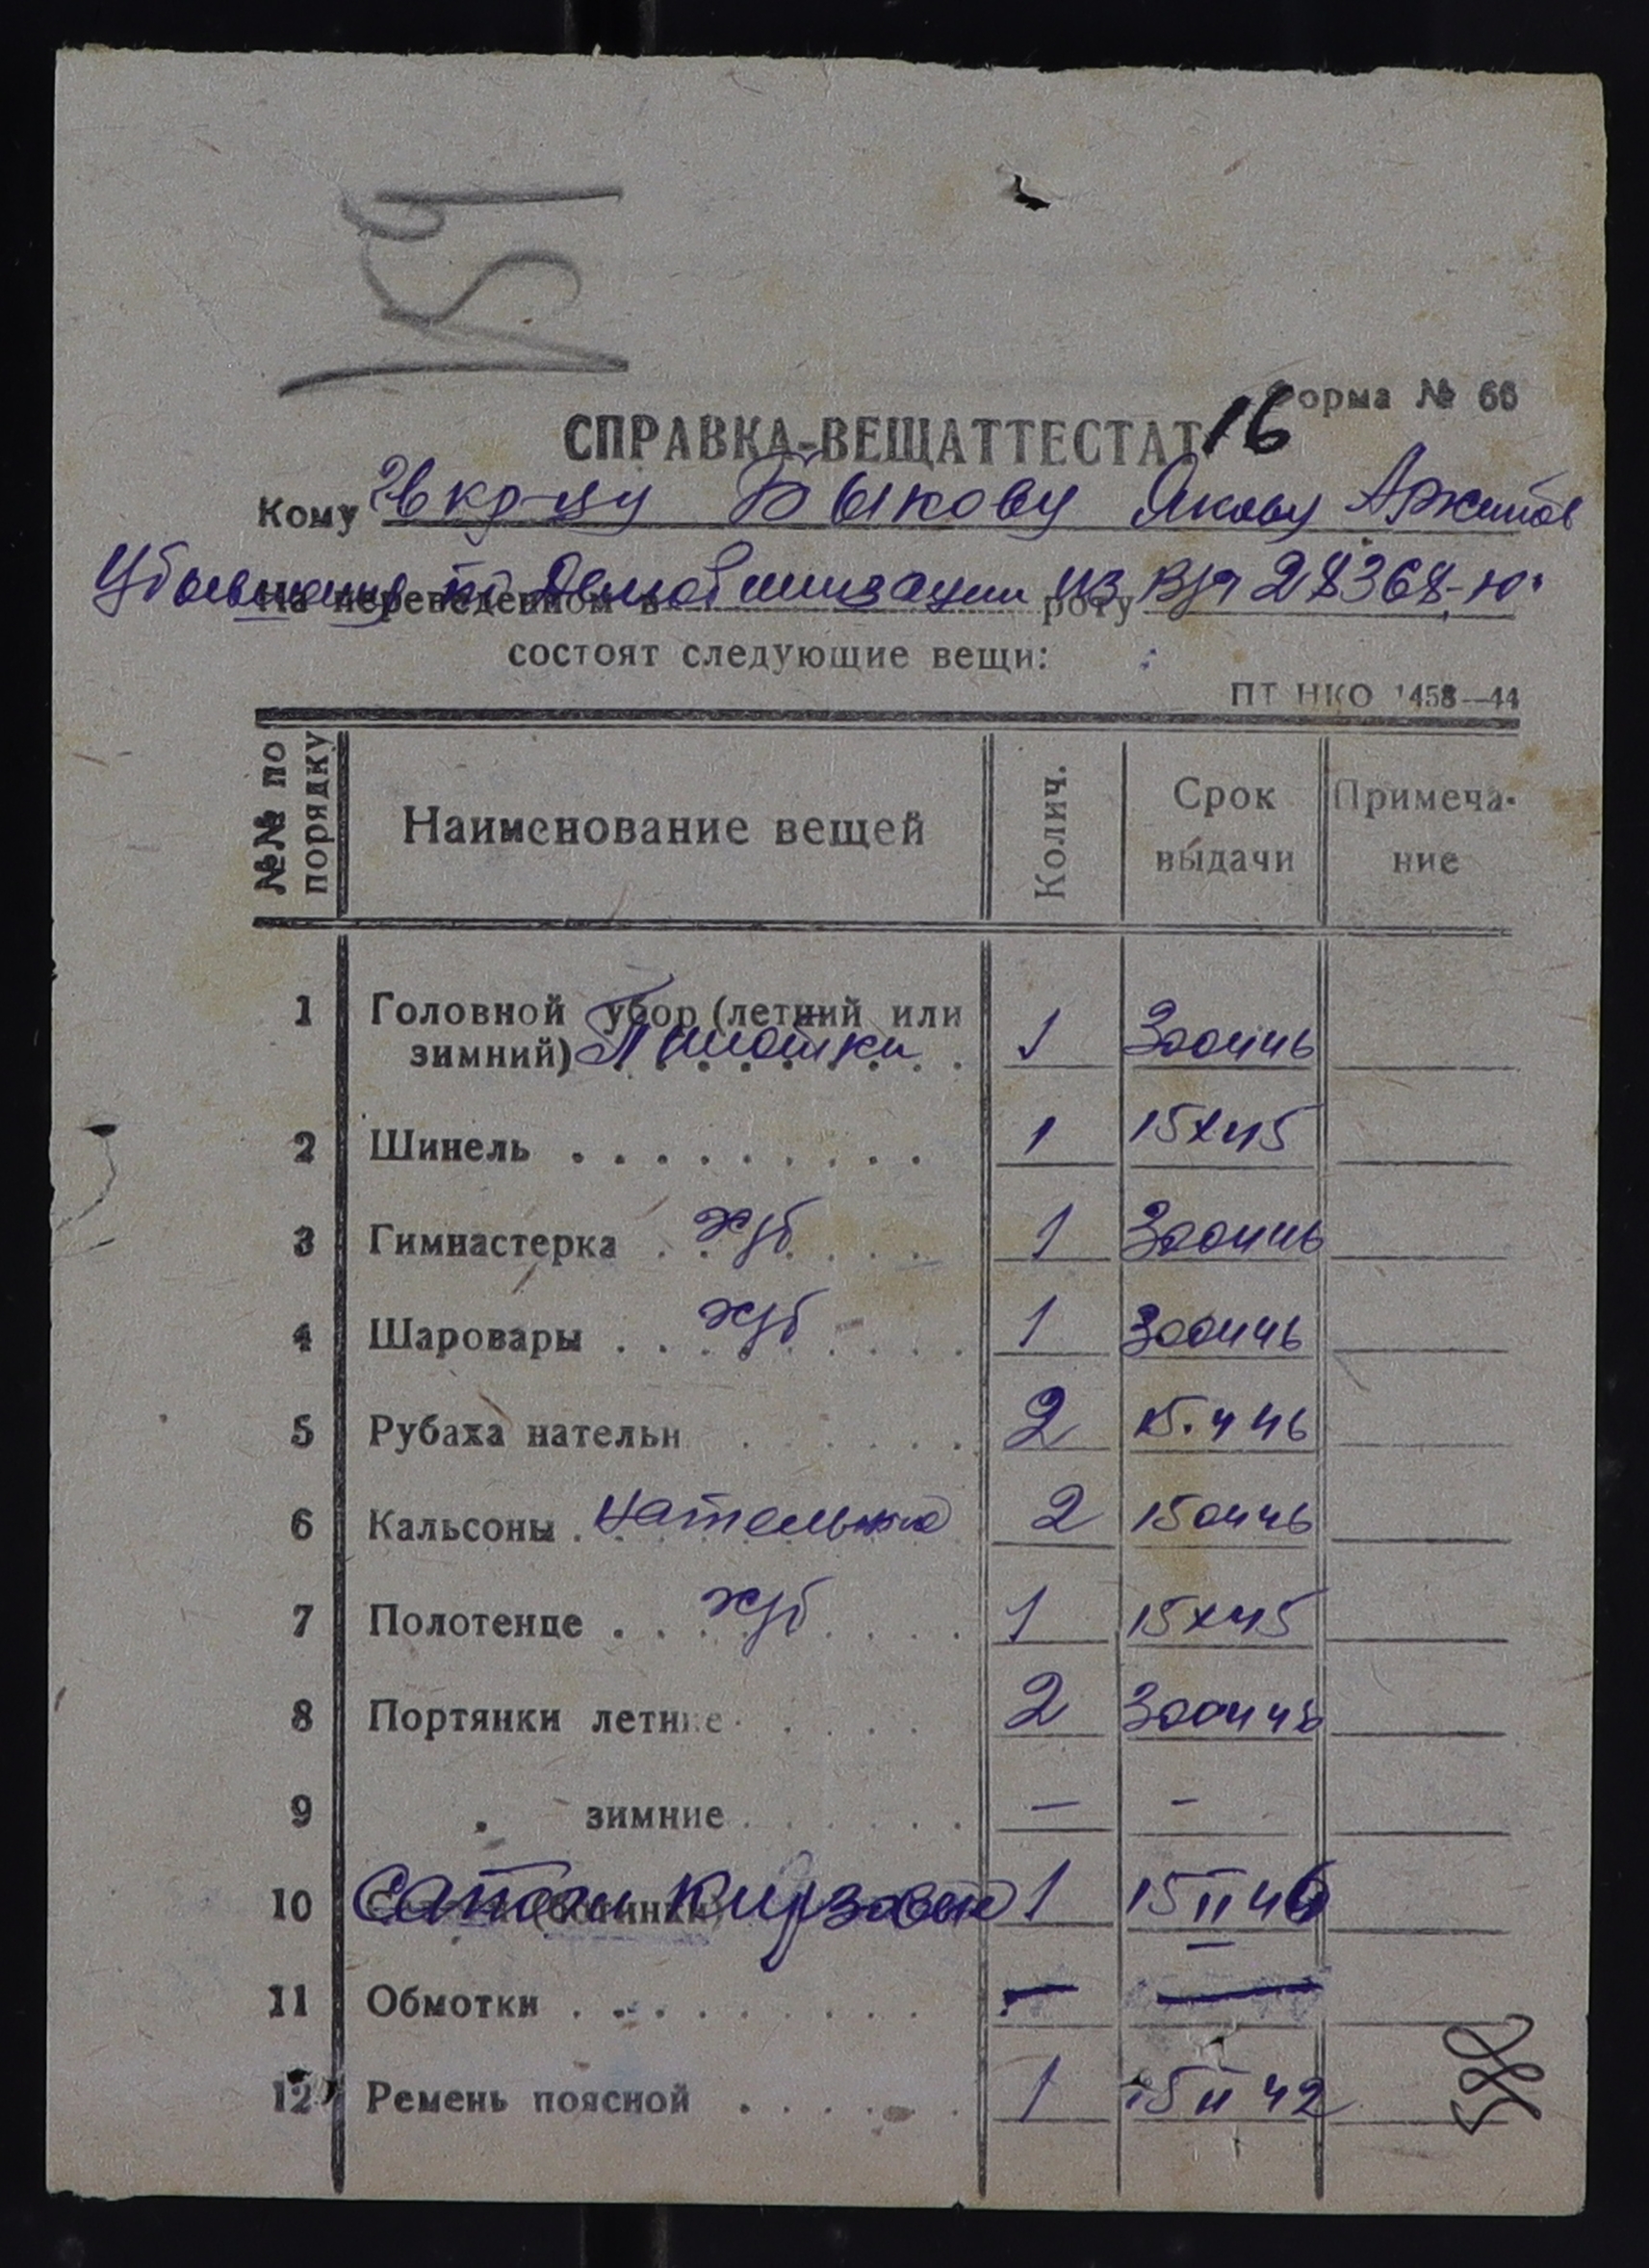 Форма № 66
СПРАВКА-ВЕЩАТТЕСТАТ 16
Кому Гв кр-цу Быкову Якову
На переведенном в роту
Убывшему по Демобилизации из в/ч 28368-Ю.
состоят следующие вещи:
ПТ НКО 1458—44
№№ по порядку Наименование вещей Колич. Срок выдачи Примеча-ние
1 Головной убор (летний или
зимний) Пилотки 1 300446
2 Шинель 1 15X45
3 Гимнастерка х/б 1 300446
4 Шаровары х/б 1 300446
5 Рубаха нательн 2 15.4 46
6 Кальсоны 2 150446
7 Полотенце х/б 1 15X45
8 Портянки летние 2 300446
9 „ зимние — -
10 Сапоги Кирзовые 1 15 II 46
11 Обмотки — —
12 Ремень поясной 1 15 II 42